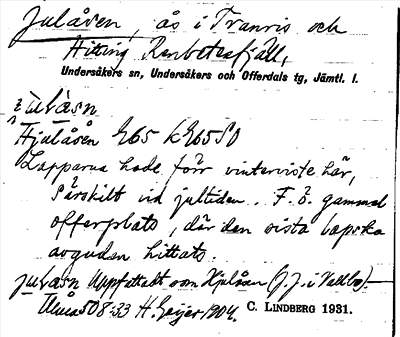 Julåsen, ås i Tranris och
Hitting Renbetesfjäll,
Undersåkers sn, Undersåkers och Offerdals tg, Jämtl. l.
Hjulåsen 265 k 265 SO
Lapparna hade förr vinterviste här,
särskilt vid jultiden. F. ö. gammal
offerplats, där den sista lapska
avguden hittats.
Uppfattadt som Hjulåsen (J. J. i Vallbo).—
508:33 H. Geijer 1904. C. LINDBERG 1931.